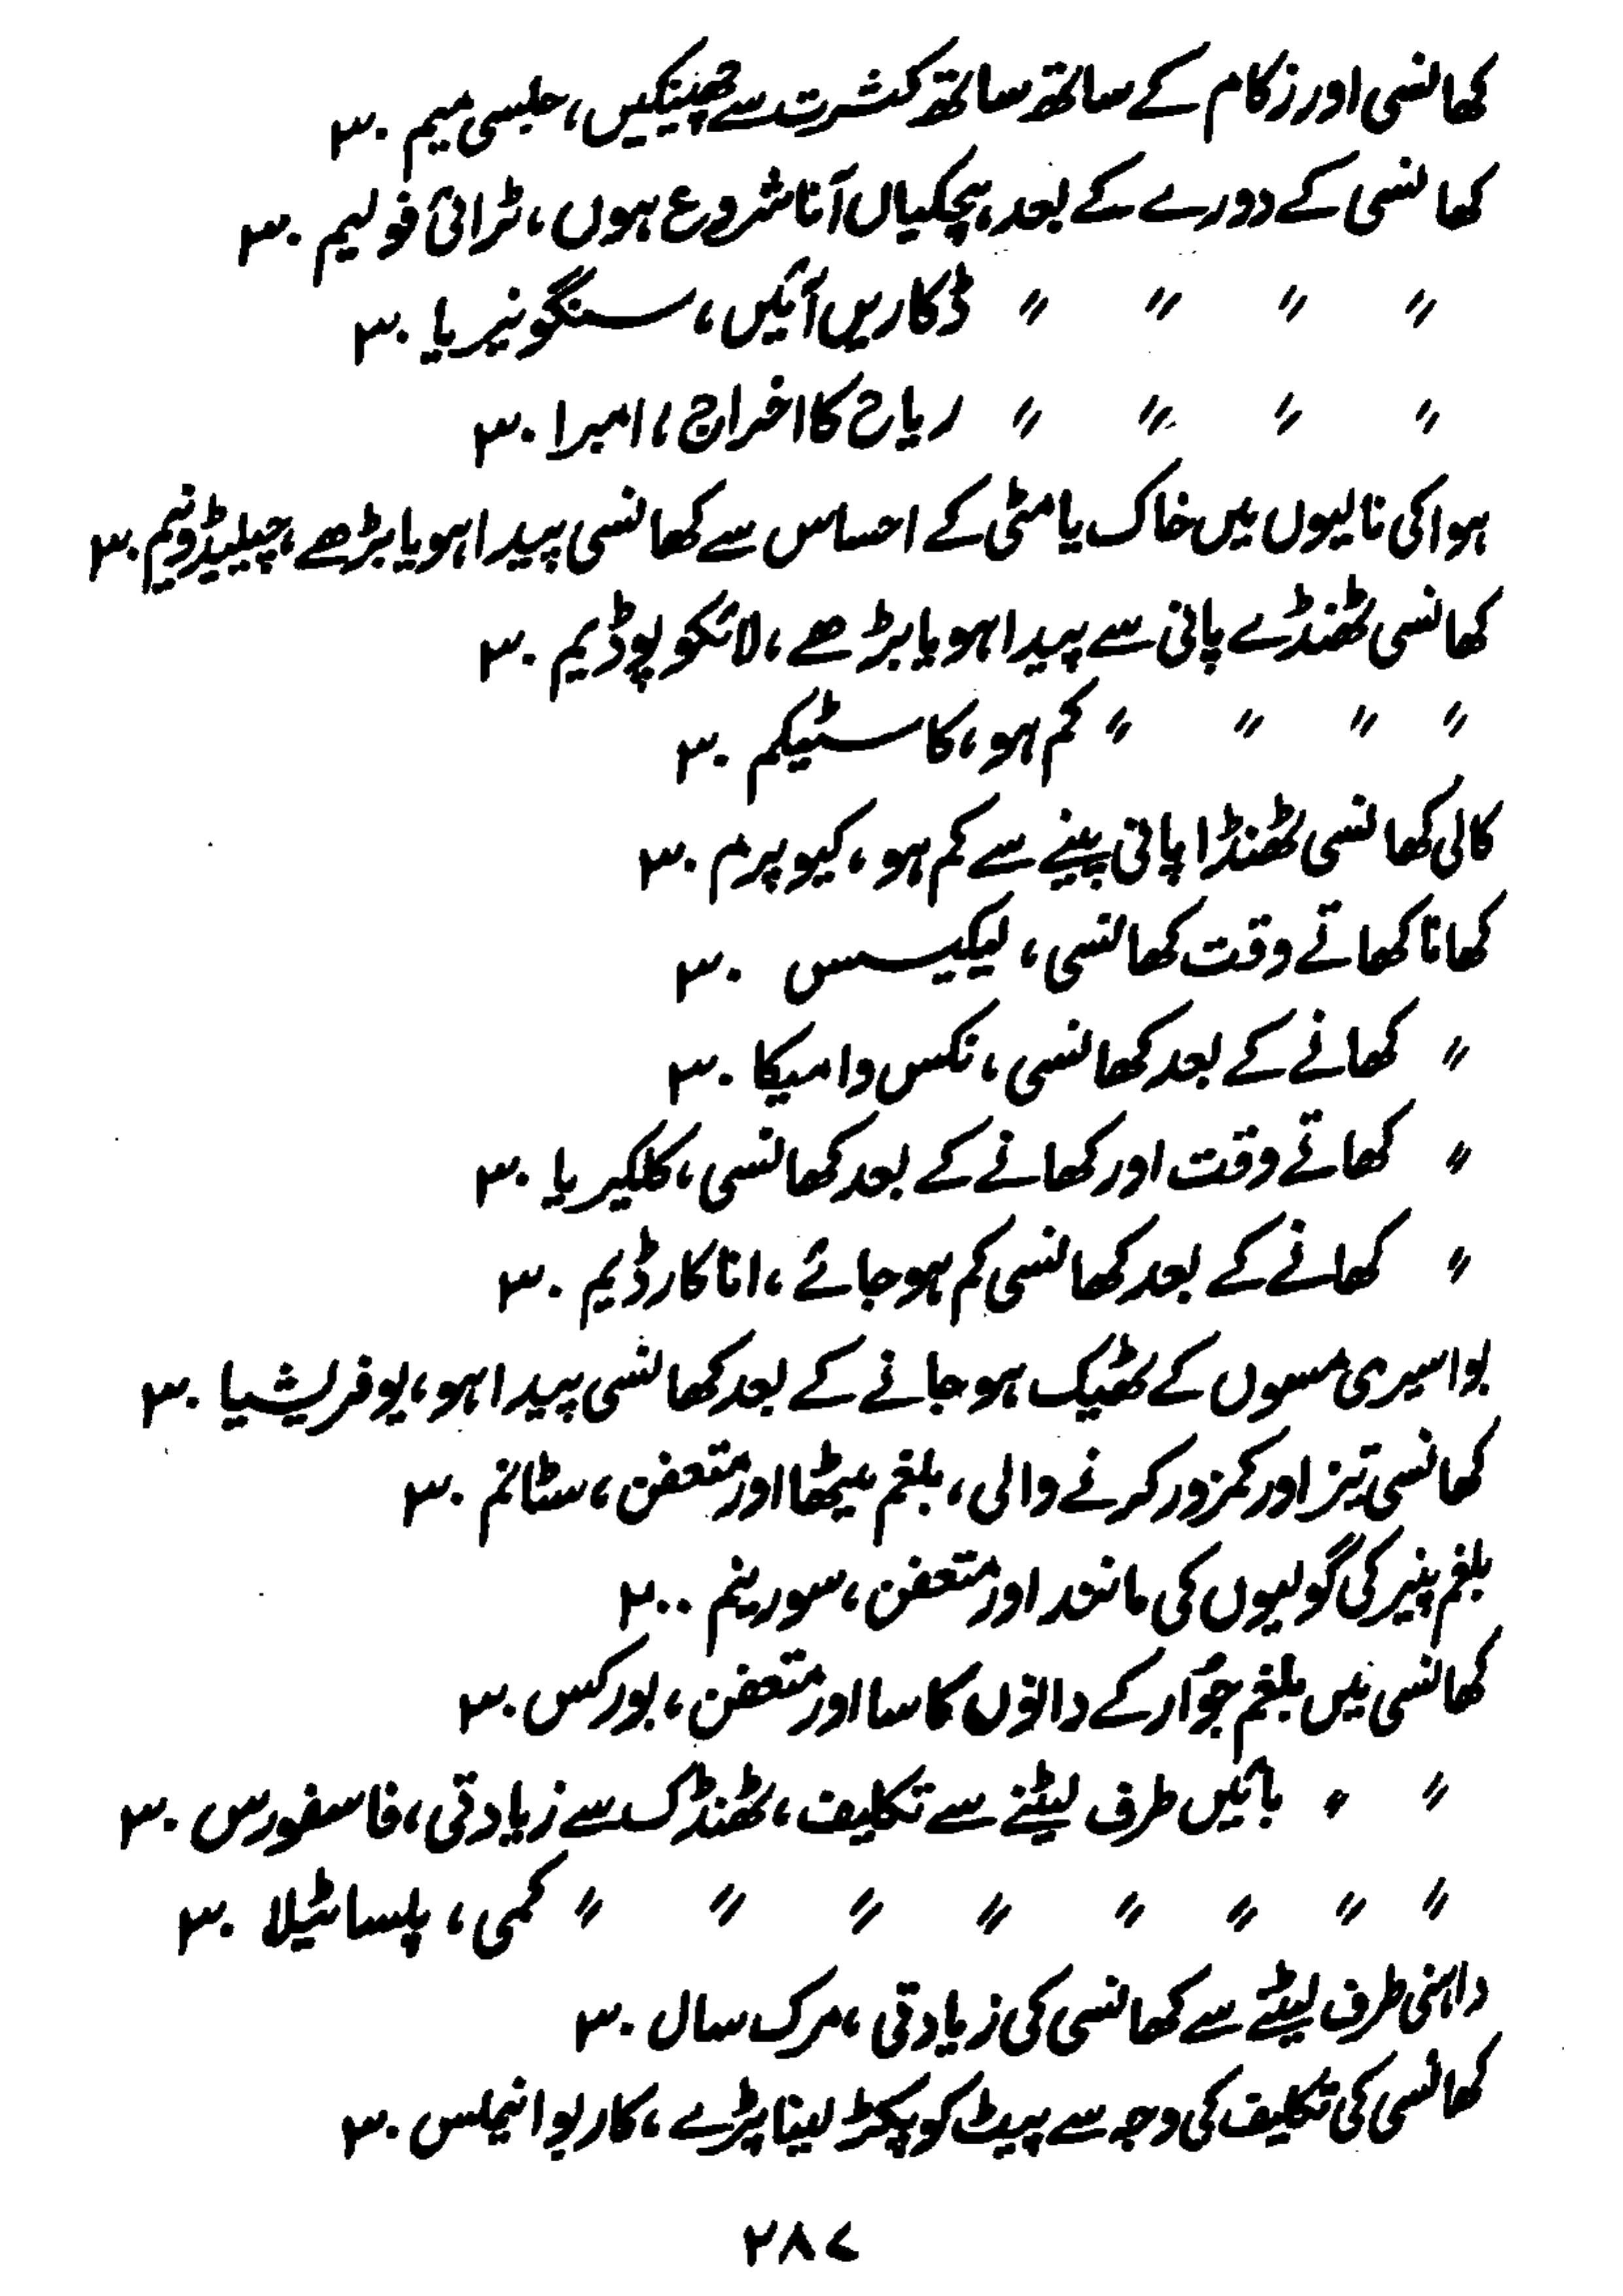 کھانسی اور زکام کے ساتھ ساتھ کثرت سے چھینکیں، جلسی میم ۳۰
کھانسی کے دورے کے بعد ہچکیاں آنا شروع ہوں، ٹرائی فولیم ۳۰
〃 〃 〃 〃 ڈکاریں آئیں، سنگونیریا ۳۰
〃 〃 〃 〃 ریاح کا اخراج، امبرا ۳۰
ہوا کی نالیوں میں خاک یا مٹی کے احساس سے کھانسی پیدا ہو یا بڑھے، چیلیڈونیم ۳۰
کھانسی ٹھنڈے پانی سے پیدا ہو یا بڑھے، لائکوپوڈیم ۳۰
〃 〃 〃 〃 کم ہو، کاسٹیکم ۳۰
کالی کھانسی ٹھنڈا پانی پینے سے کم ہو، کیوپرم ۳۰
کھانا کھاتے وقت کھانسی، لیکیسس ۳۰
〃 کھانے کے بعد کھانسی، نکس وامیکا ۳۰
〃 کھاتے وقت اور کھانے کے بعد کھانسی، کلکیریا ۳۰
〃 کھانے کے بعد کھانسی کم ہو جائے، اناکارڈیم ۳۰
بواسیری مسوں کے ٹھیک ہو جانے کے بعد کھانسی پیدا ہو، یوفریشیا ۳۰
کھانسی تیز اور کمزور کرنے والی، بلغم میٹھا اور متعفن، سٹانم ۳۰
بلغم پنیر کی گولیوں کی مانند اور متعفن، سورینم ۲۰۰
کھانسی میں بلغم جوار کے دانوں کا سا اور متعفن، بورکس ۳۰
〃 〃 بائیں طرف لیٹنے سے تکلیف، ٹھنڈک سے زیادتی، فاسفورس ۳۰
〃 〃 〃 〃 〃 〃 〃 〃 کمی، پلساٹیلا ۳۰
داہنی طرف لیٹنے سے کھانسی کی زیادتی، مرک سال ۳۰
کھانسی کی تکلیف کی وجہ سے پیٹ کو پکڑ لینا پڑے، کاربوانیملس ۳۰
۲۸۷